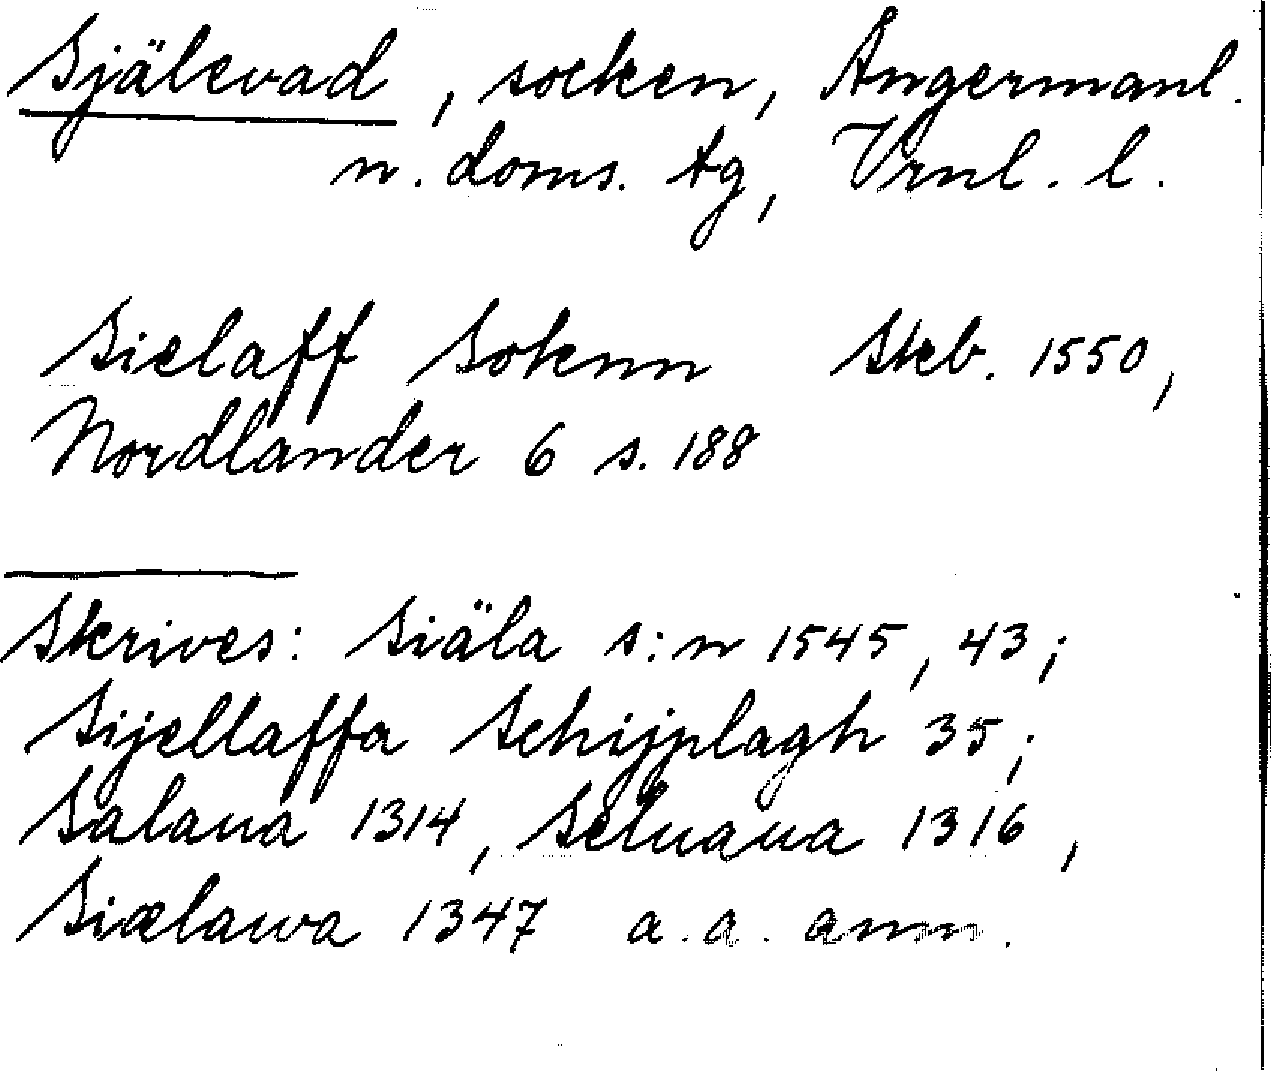 Själevad, socken, Ångermanl.
n. doms. tg, Vrnl. l.
Sielaff Soknn Skb. 1550,
Nordlander 6 s. 188
Skrives: Siäla s:n 1545, 43;
Sijellaffa Schijplagh 35;
Salaua 1314, Seluaua 1316,
Siælawa 1347 a.a. anm.